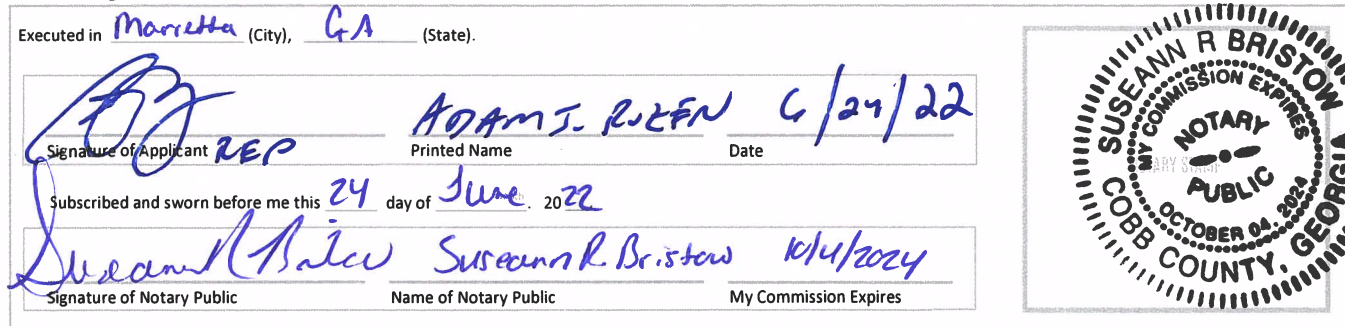 Executed in Marretta (City), GA (State).
ADAM J. ROZEN 6/24/22
Signature of Applicant REP Printed Name Date
Subscribed and sworn before me this 24 day of June. 2022
Suseann R Bristow Suseann R Bristow 10/4/2024
Signature of Notary Public Name of Notary Public My Commission Expires
SUSEANN R BRISTOW
MY COMMISSION EXPIRES
NOTARY
PUBLIC
OCTOBER 04, 2024
COBB COUNTY, GEORGIA